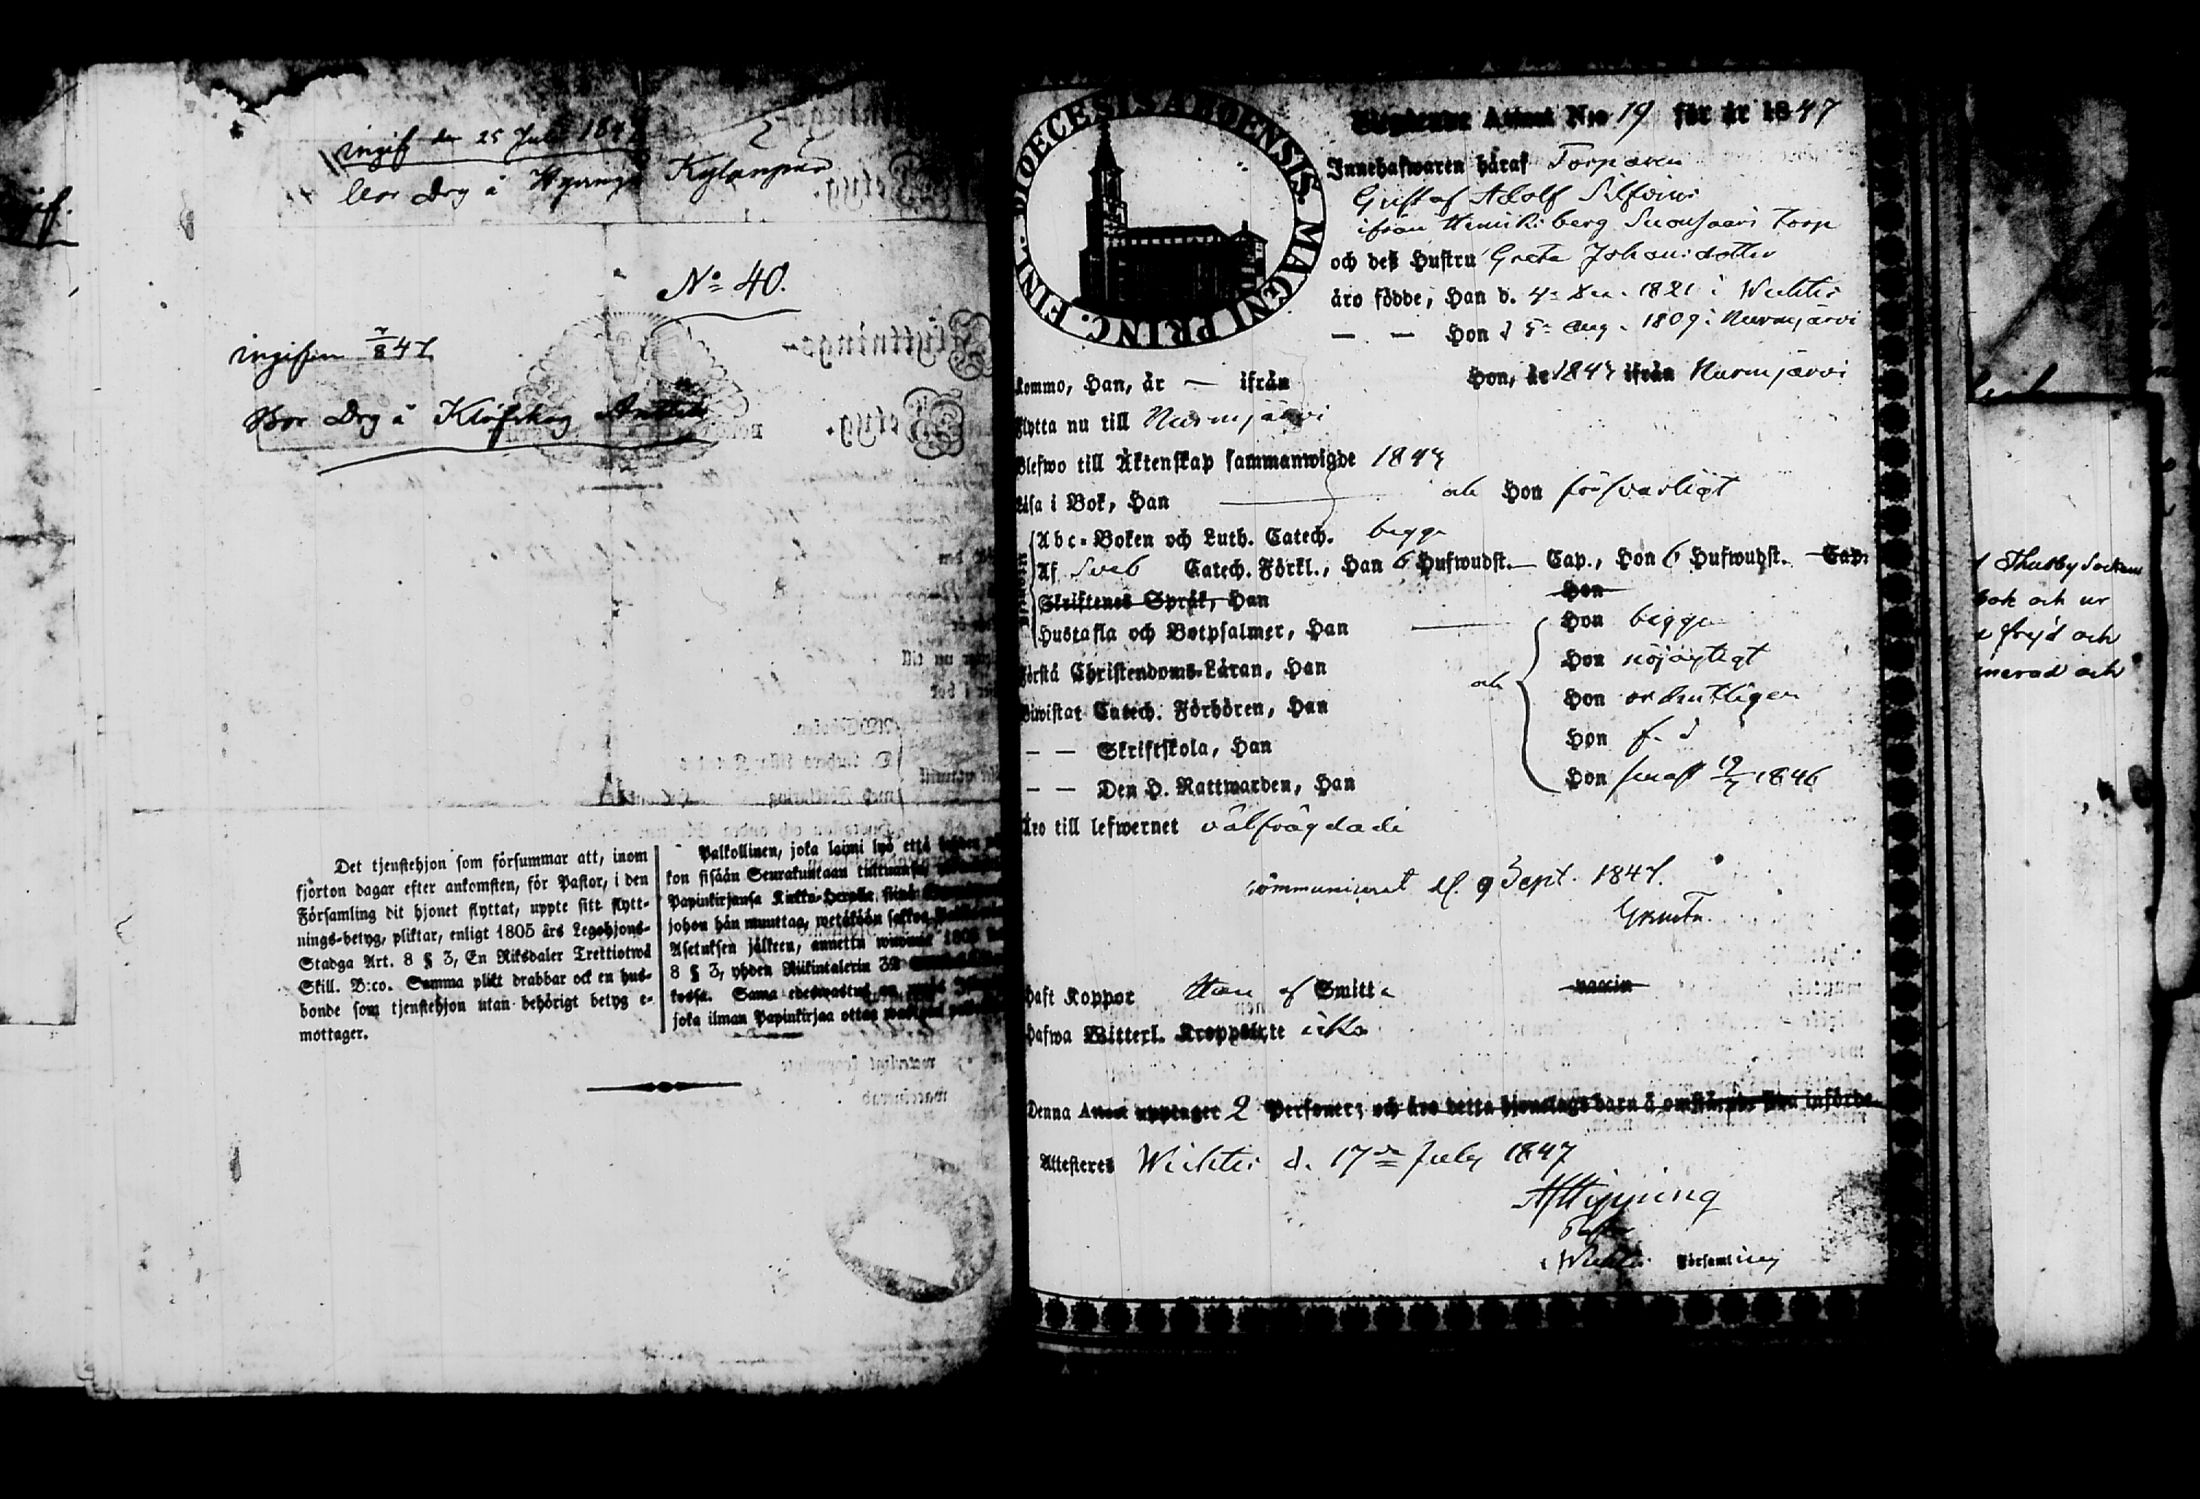 ingif den 25 Juli 184
bor Drg å
Kylänpää
No 40.
ingifven 7/8 47.
Bor Drg å Klöfskog
Flyttnings-
Betyg.
Det tjenstehjon som försummar att, inom
fjorton dagar efter ankomsten, för Pastor, i den
Församling dit hjonet flyttat, uppte sitt flytt-
nings-betyg, pliktar, enligt 1805 års Legohjons-
Stadga Art. 8 § 3, En Riksdaler Trettiotwå
Skill. B:co. Samma plikt drabbar ock en hus-
bonde som tjenstehjon utan behörigt betyg e-
mottager.
Palkollinen, joka laimi lyö että
kon sisään Seurakuntaan
Papinkirjansa Kirkko-Herralle,
johon hän muuttaa, wetäköön sakkoa
Asetuksen jälkeen, annettu wuonna 1805
8 § 3, yhden Riikintalerin 32
Sama edeswastus on myös
joka ilman Papinkirjaa ottaa
DIOECESIS ABOENSIS. MAGNI PRINC. FINL.
Attest N:o 19 för år 1847
Innehafwaren häraf Torparen
Gustaf Adolf
ifrån Henriksberg Suonsaari Torp
och deß Hustru Greta Johansdotter
äro födde, Han d. 4 Dec. 1821 i Wichtis
— — Hon d 5 Aug. 1809 i Nurmijärvi
kommo, Han, år — ifrån Hon, år 1847 ifrån Nurmijärvi
flytta nu till Nurmijärvi
Blefwo till Äktenskap sammanwigde 1847
Läsa i Bok, Han — och Hon försvarligt
Abc-Boken och Luth. Catech. begge
Af Sveb Catech. Förkl., Han 6 Hufwudst. — Cap., Hon 6 Hufwudst. — Cap.
Skriftenes Språk, Han Hon
Hustafla och Botpsalmer, Han — Hon begge
Förstå Christendoms-Läran, Han och Hon nöjagtigt
Biwistat Catech. Förhören, Han Hon ordentligen
— — Skriftskola, Han Hon f. d
— — Den H. Nattwarden, Han Hon senast 19/7 1846
Äro till lefwernet välfrägdade
communicerat d. 9 Sept. 1847.
haft Koppor Han af Smitta vaccin
hafwa Witterl. Kroppslyte icke
Denna Attest upptager 2 Personer; och äro detta hjonelags barn å omstående sida införde
Attesteres Wichtis d. 17de July 1847
AHipping
i Wichtis Församling
Thusby Socken
bok och ur
frejd och
nerad och